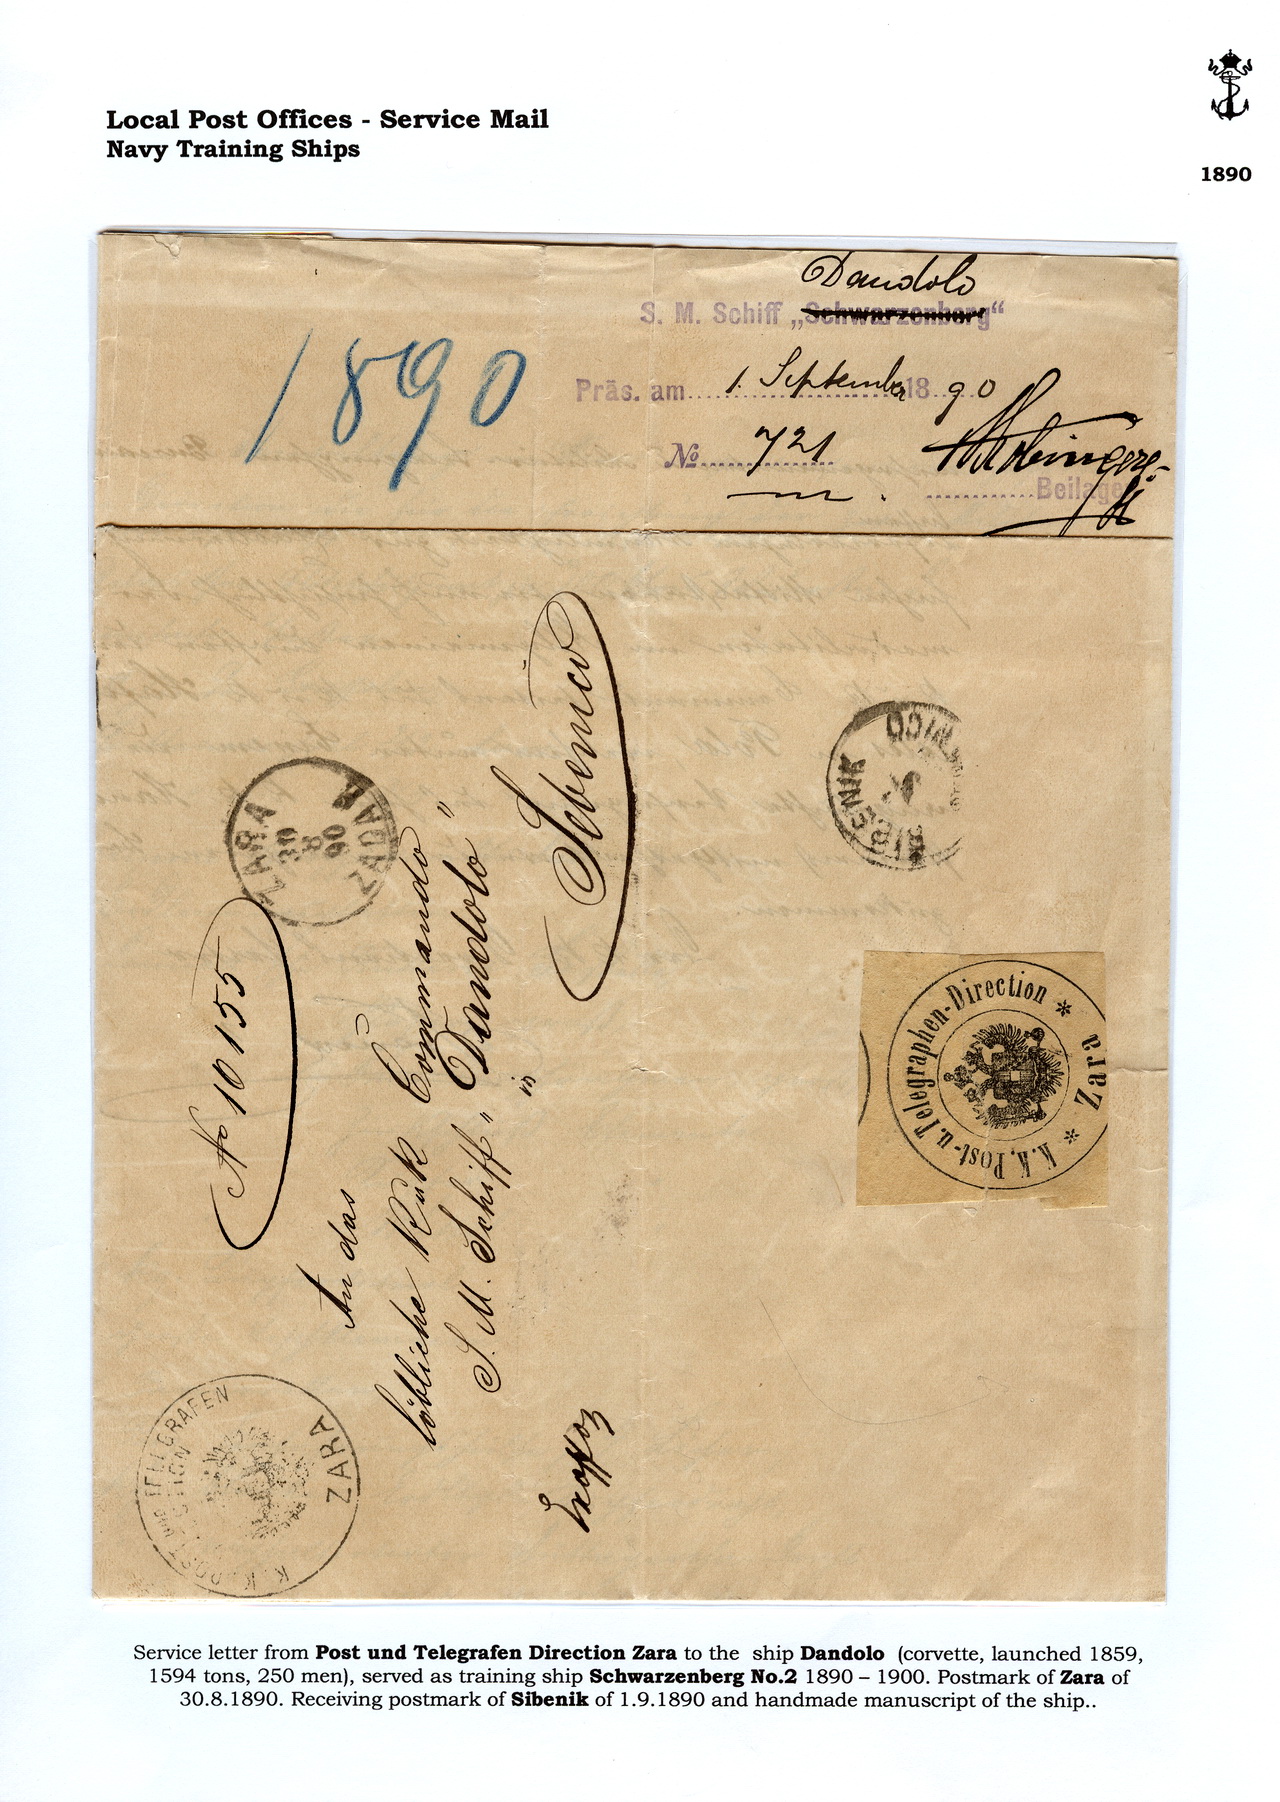 Local Post Offices - Service Mail
Navy Training Ships
1890
Dandolo
S. M. Schiff „Schwarzenberg“
1890
Präs. am 1. September 1890
No 721
Beilage
Sebenico
ŠIBENIK
ZARA
30
8
90
ZADAR
No 10155
An das
löbliche K u k Commando
S. M. Schiff „Dandolo“
in
Sebenico
K. K. Post- u. Telegraphen-Direction * Zara *
K. K. POST UND TELEGRAFEN
ZARA
Service letter from Post und Telegrafen Direction Zara to the ship Dandolo (corvette, launched 1859,
1594 tons, 250 men), served as training ship Schwarzenberg No.2 1890 – 1900. Postmark of Zara of
30.8.1890. Receiving postmark of Sibenik of 1.9.1890 and handmade manuscript of the ship..